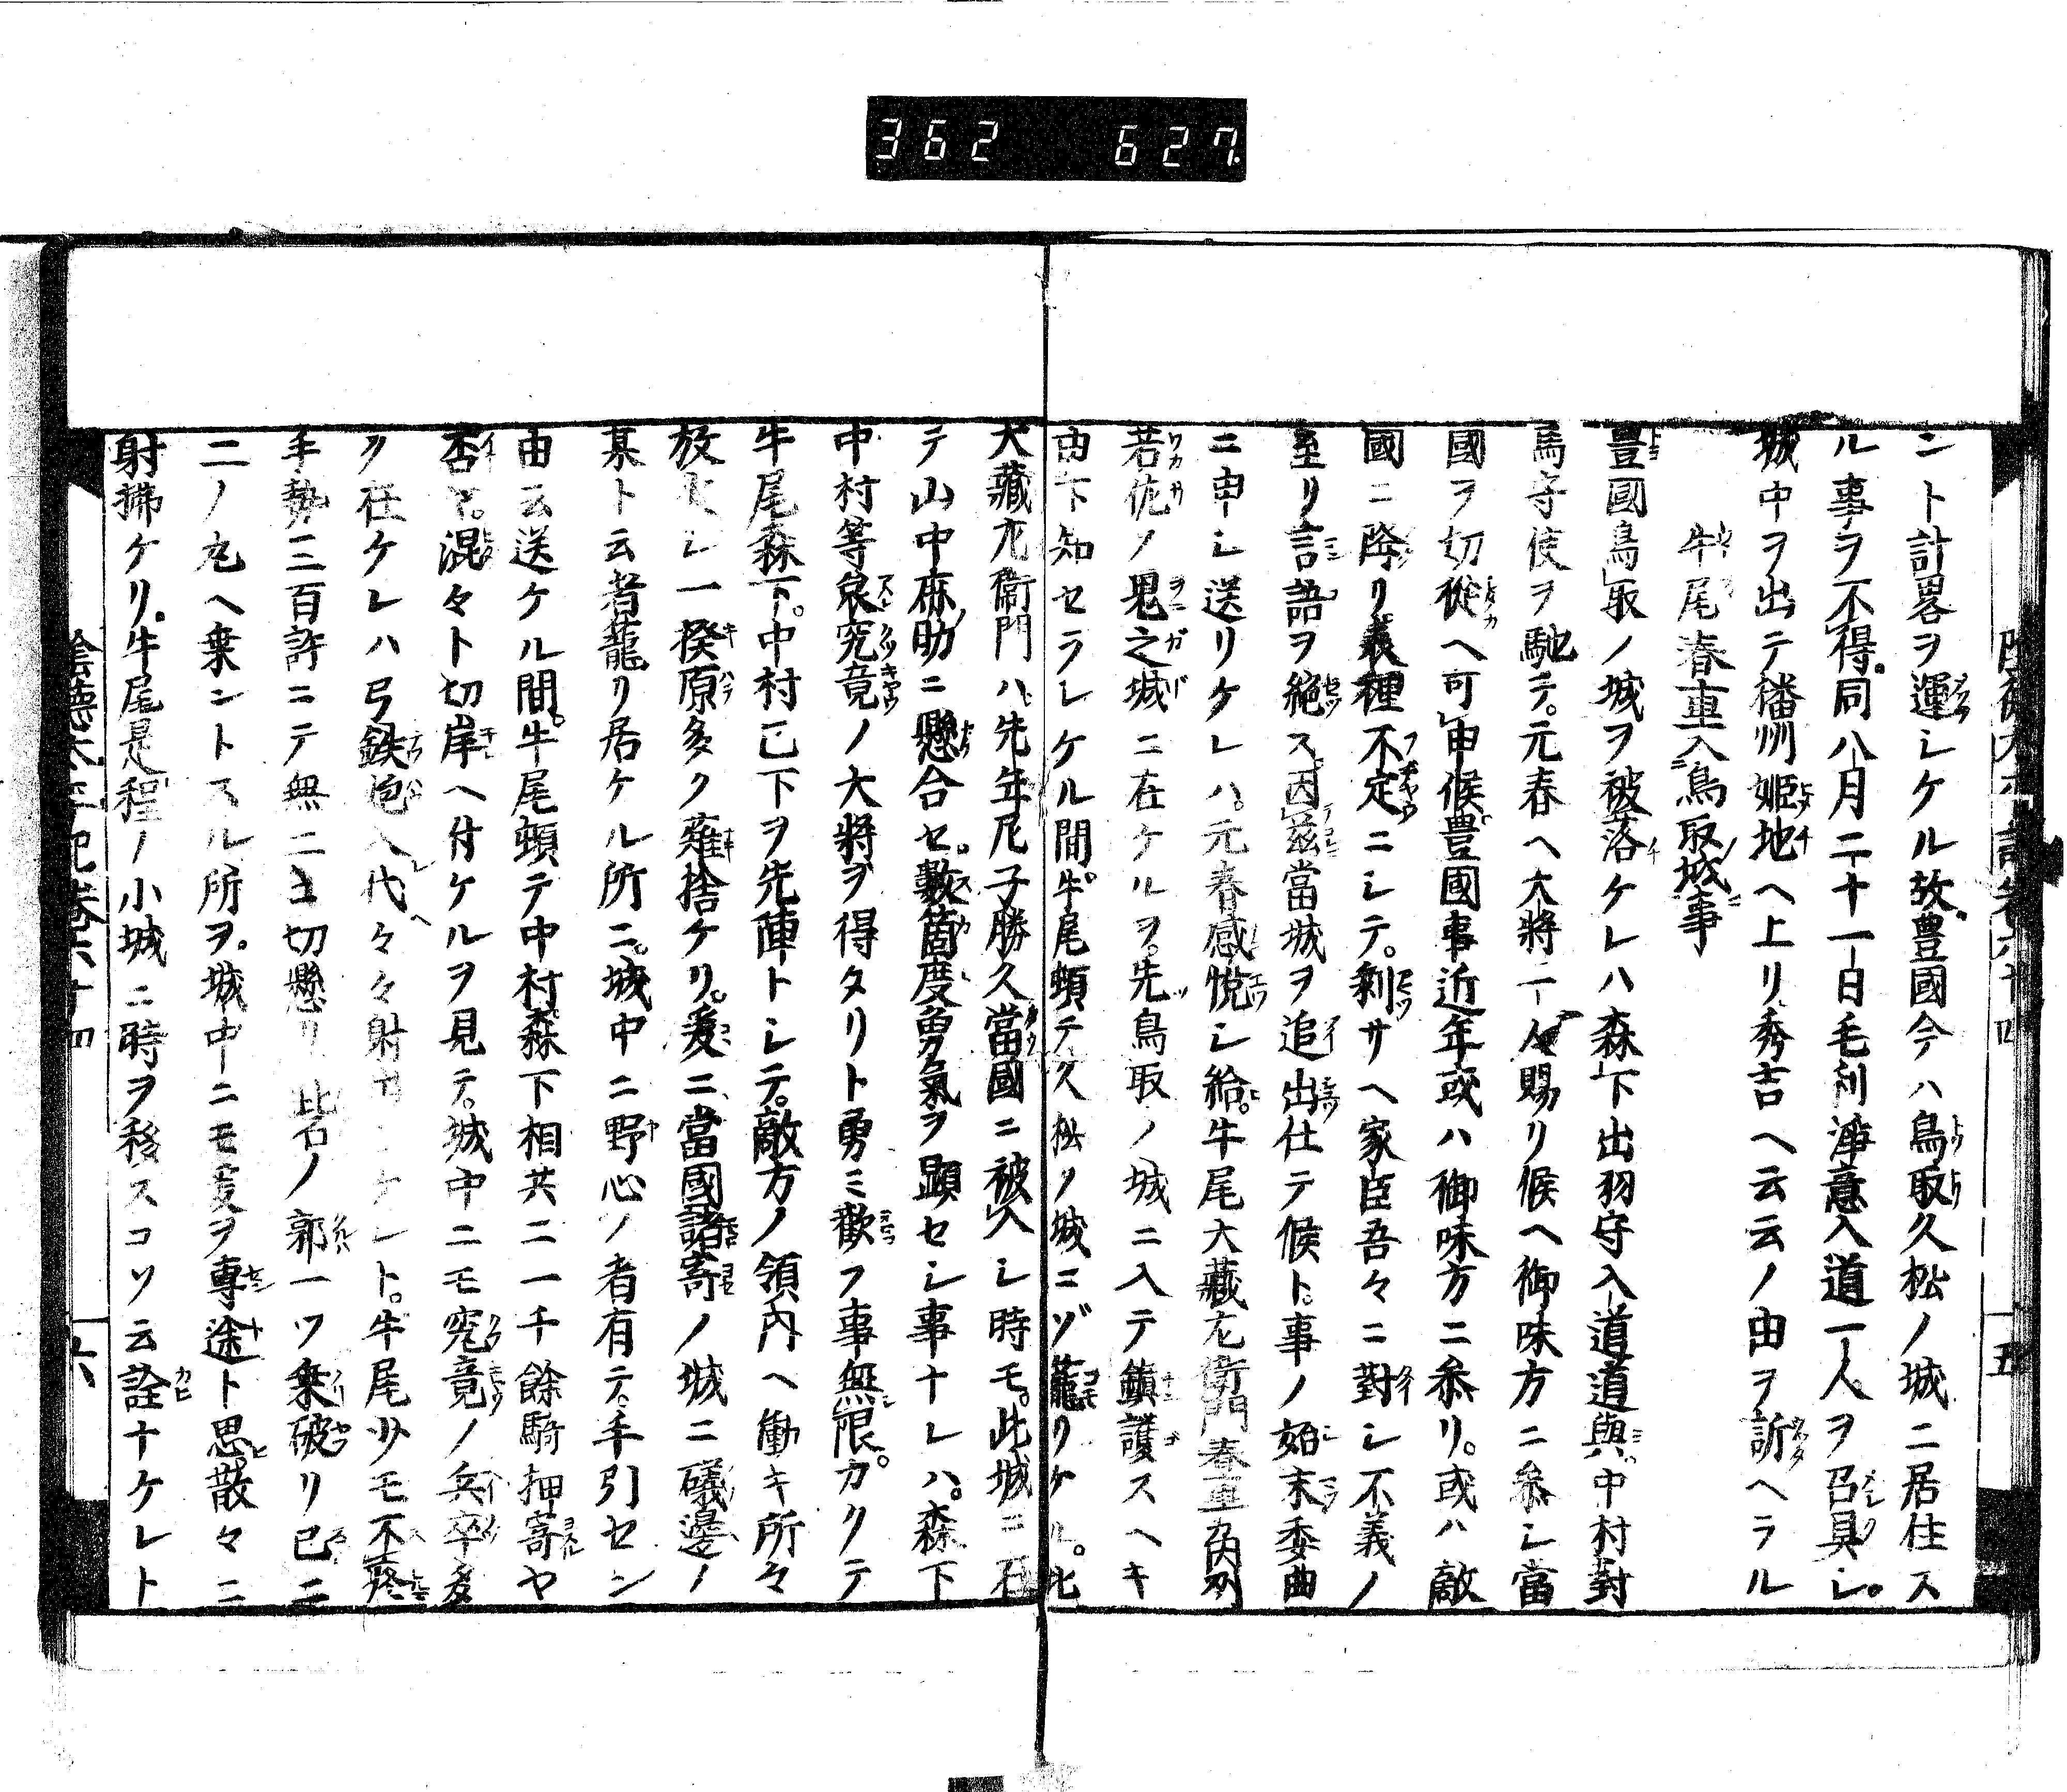 362 627
ント計畧ヲ運シケル故豊國今ハ鳥取久松ノ城ニ居住ス
ル事ヲ不得同八月二十一日毛利浄意入道一人ヲ召具シ
城中ヲ出テ播州姫地ヘ上リ秀吉ヘ云云ノ由ヲ訴ヘラル
牛尾春重入鳥取城事
豊國鳥取ノ城ヲ被落ケレハ森下出羽守入道道與中村對
馬守使ヲ馳テ元春ヘ大將一人賜リ候ヘ御味方ニ參シ當
國ヲ切從ヘ可申候豊國事近年或ハ御味方ニ參リ或ハ敵
國ニ降リ表裡不定ニシテ剰サヘ家臣吾々ニ對シ不義ノ
至リ言語ヲ絶ス因茲當城ヲ追出仕テ候ト事ノ始末委曲
ニ申シ送リケレハ元春感悦シ給牛尾大藏左衛門春重因州
若佐ノ鬼之城ニ在ケルヲ先鳥取ノ城ニ入テ鎮護スヘキ
由下知セラレケル間牛尾頓テ久松ノ城ニゾ籠リケル此
大藏左衛門ハ先年尼子勝久當國ニ被入シ時モ此城ニ在
テ山中麻助ニ懸合セ數箇度勇氣ヲ顕セシ事ナレハ森下
中村等哀究竟ノ大將ヲ得タリト勇ミ歡フ事無限カクテ
牛尾森下中村已下ヲ先陣トシテ敵方ノ領内ヘ働キ所々
放火シ一揆原多ク薙捨ケリ爰ニ當國諸寄ノ城ニ礒邊ノ
某ト云者籠リ居ケル所ニ城中ニ野心ノ者有テ手引セン
由云送ケル間牛尾頓テ中村森下相共ニ一千餘騎押寄ヤ
否ヤ混々ト切岸ヘ付ケルヲ見テ城中ニモ究竟ノ兵卒多
ク在ケレハ弓鉄炮入代々々射ケレト牛尾少モ不疼
手勢三百許ニテ無二ニ切懸リ 岩ノ郭一ツ乗破リ已ニ
二ノ丸ヘ乗ントスル所ヲ城中ニモ爰ヲ専途ト思散々ニ
射拂ケリ牛尾是程ノ小城ニ時ヲ移スコソ云詮ナケレト
陰德太平記卷六十四 五
陰德太平記卷六十四 六